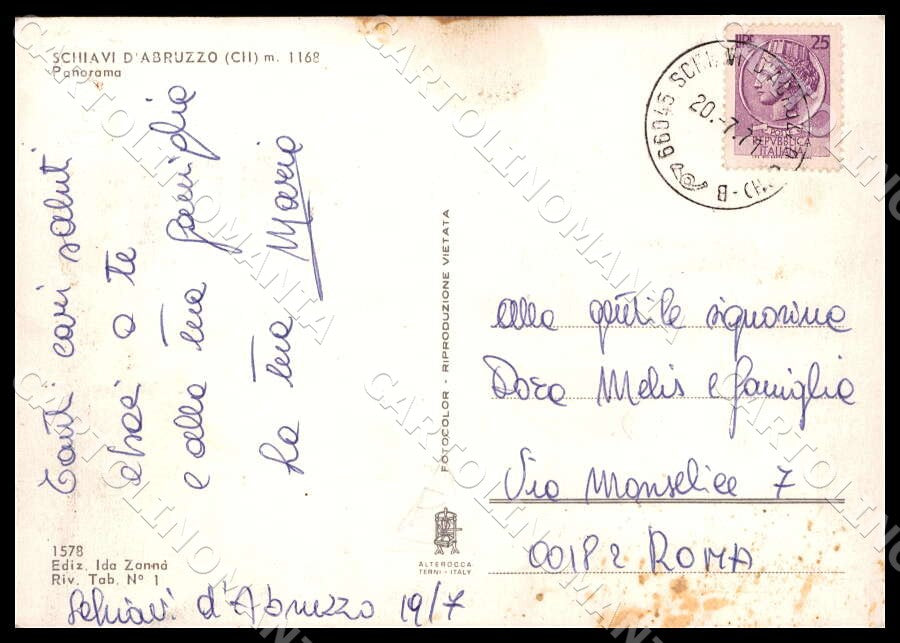 SCHIAVI D'ABRUZZO (CH) m. 1168
Panorama
Tanti cari saluti
a te
e alla tua famiglia
la tua Maria
1578
Ediz. Ida Zanna
Riv. Tab. N° 1
Schiavi d'Abruzzo 19/7
FOTOCOLOR - RIPRODUZIONE VIETATA
ALTEROCCA
TERNI - ITALY
LIRE 25
REPVBBLICA
ITALIANA
66045 SCHIAVI D'ABRUZZO
20.-7.71
B-(CH)
alla gentile signorina
Dora Melis e famiglia
Via Monselice 7
00182 ROMA
CARTOLINOMANTIA